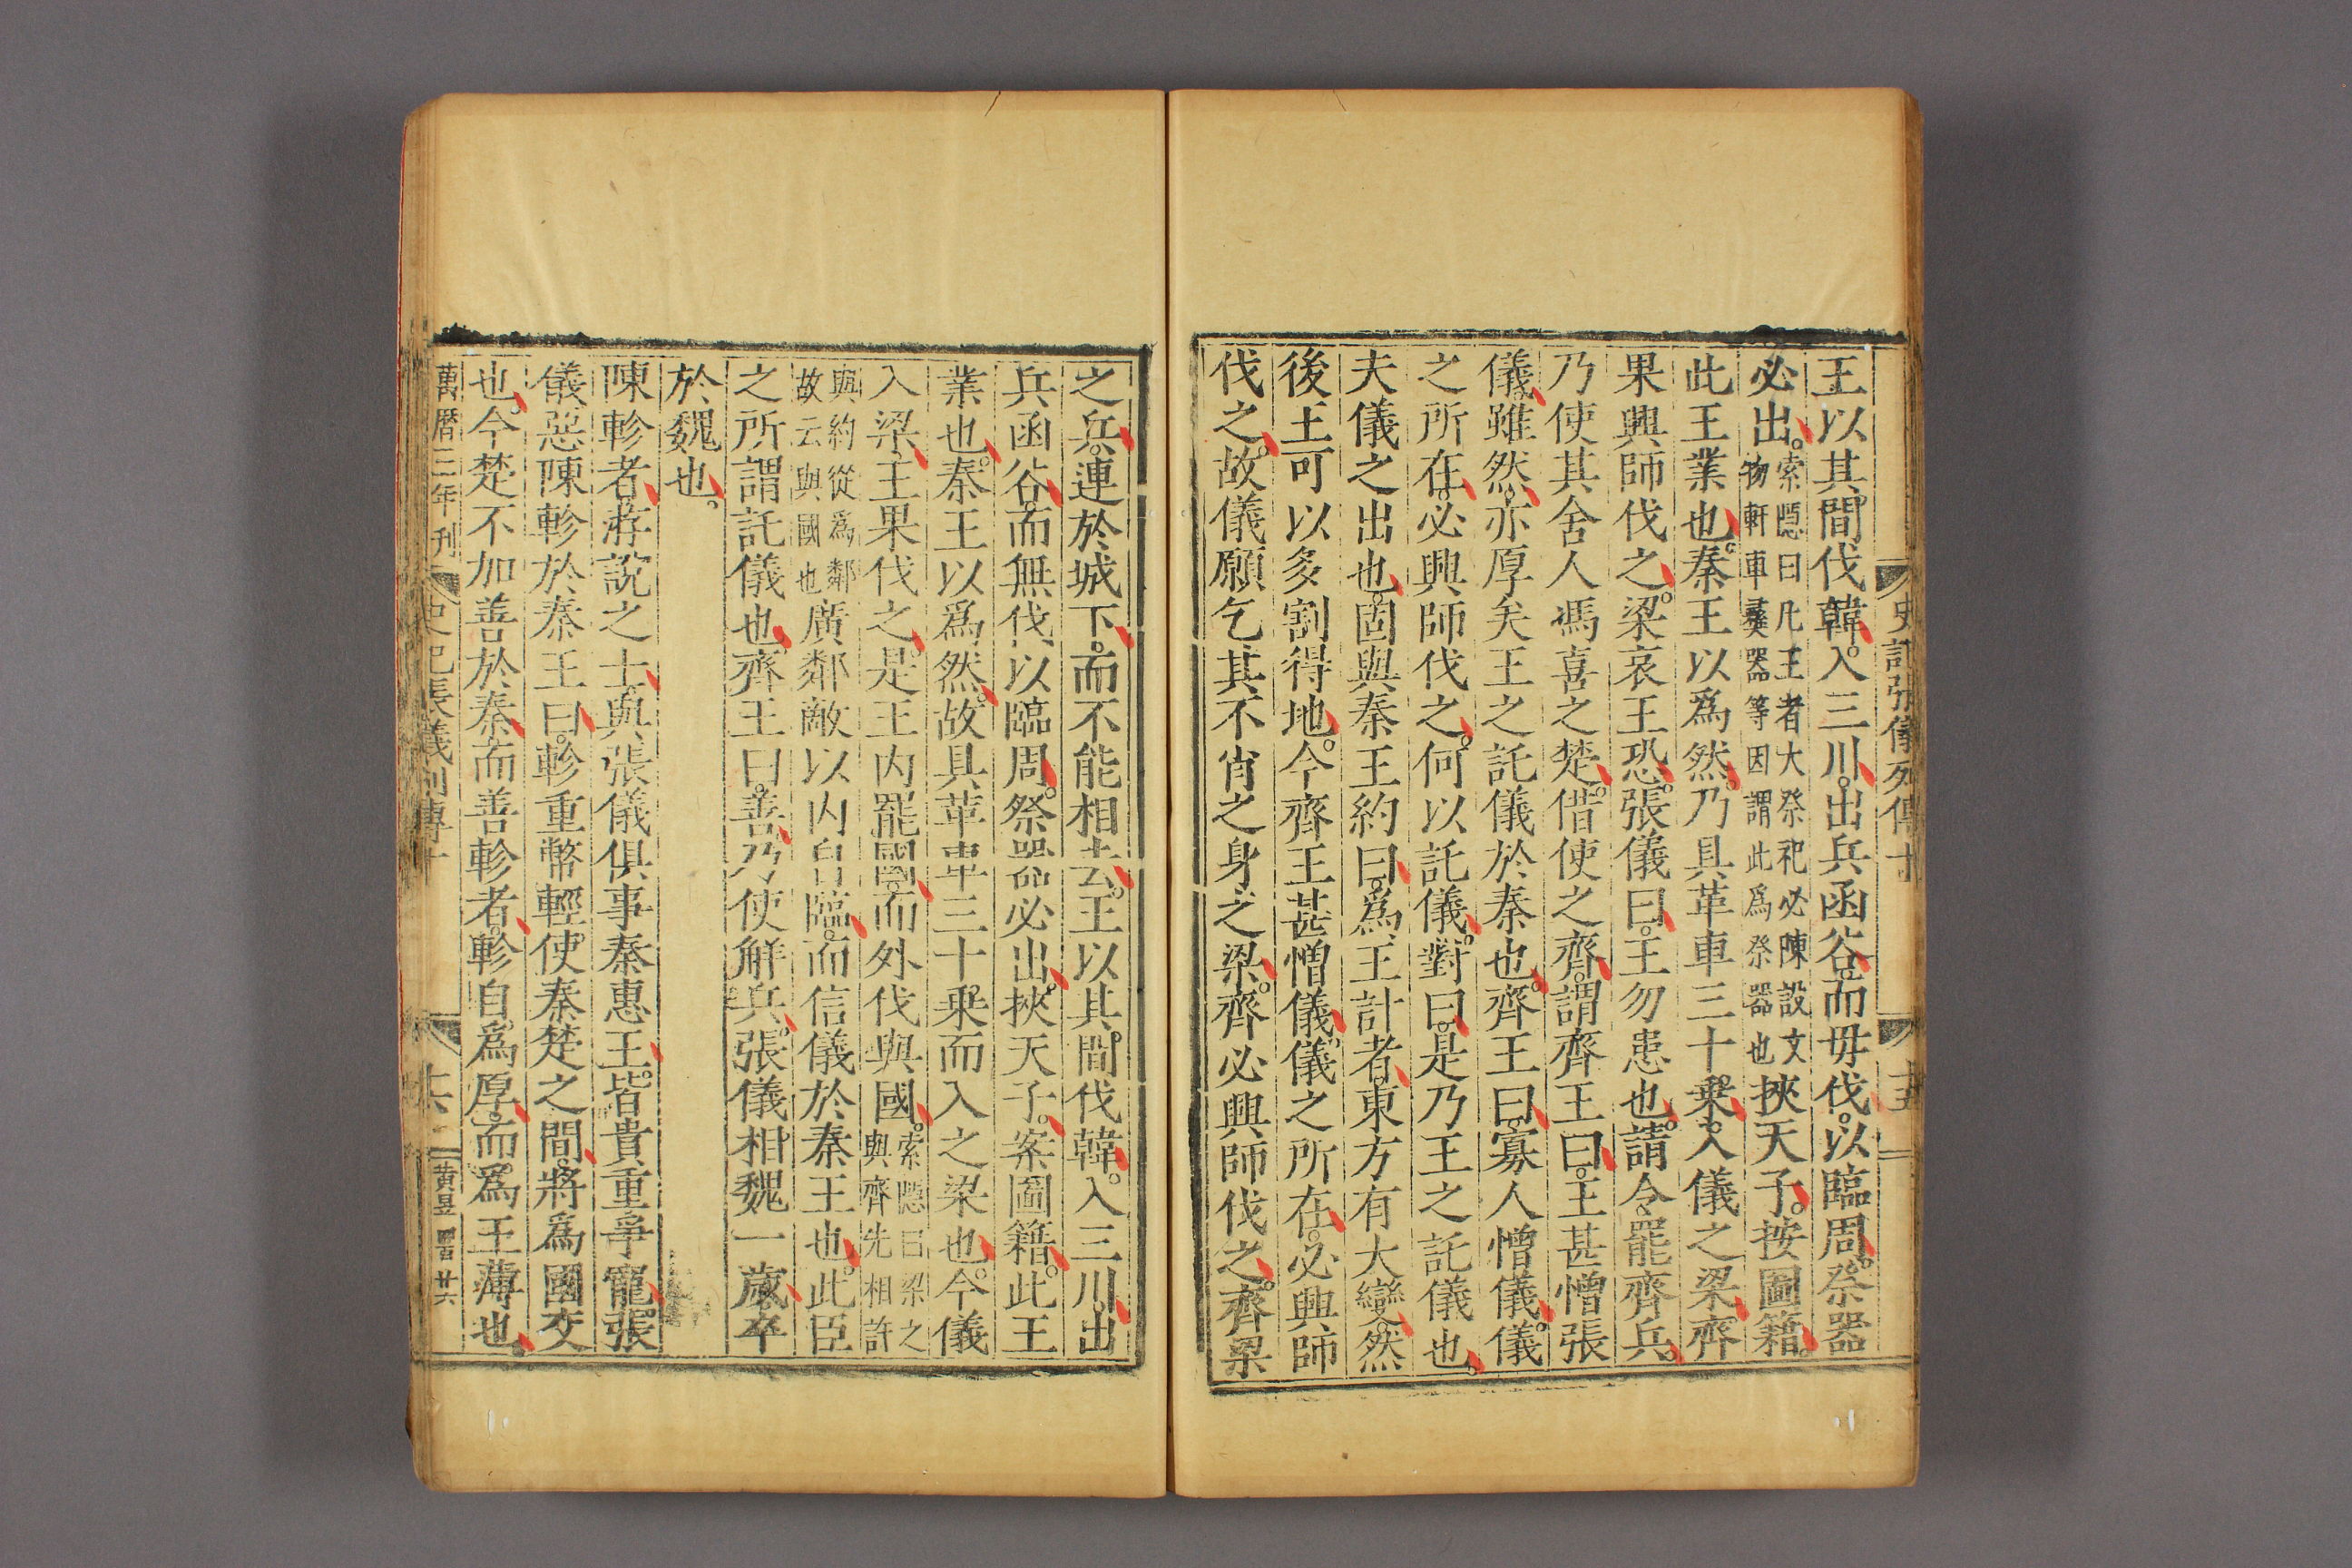 史記張儀列傳十 十五
王以其間伐韓。入三川。出兵函谷。而毋伐。以臨周。祭器
必出。索隱曰凡王者大祭祀必陳設文
物軒車彝器等因謂此爲祭器也
挾天子。按圖籍。
此王業也。秦王以爲然。乃具革車三十乗。入儀之梁。齊
果興師伐之。梁哀王恐。張儀曰。王勿患也。請令罷齊兵。
乃使其舍人馮喜之楚。借使之齊。謂齊王曰。王甚憎張
儀。雖然。亦厚矣王之託儀於秦也。齊王曰。寡人憎儀。儀
之所在。必興師伐之。何以託儀。對曰。是乃王之託儀也。
夫儀之出也。固與秦王約曰。爲王計者。東方有大變。然
後王可以多割得地。今齊王甚憎儀。儀之所在。必興師
伐之。故儀願乞其不肖之身之梁。齊必興師伐之。齊梁
之兵。連於城下。而不能相去。王以其間伐韓。入三川。出
兵函谷。而無伐以臨周。祭器必出。挾天子。案圖籍。此王
業也。秦王以爲然。故具革車三十乗而入之梁也。今儀
入梁。王果伐之。是王内罷國。而外伐與國。索隱曰梁之
與齊先相許
與約從爲鄰
故云與國也
廣鄰敵以内自臨。而信儀於秦王也。此臣
之所謂託儀也。齊王曰。善。乃使解兵。張儀相魏一歲。卒
於魏也。
陳軫者。游說之士。與張儀俱事秦惠王。皆貴重爭寵。張
儀惡陳軫於秦王曰。軫重幣輕使秦楚之間。將爲國交
也。今楚不加善於秦。而善軫者。軫自爲厚。而爲王薄也。
萬曆三年刊 史記張儀列傳十 十六 黄昱